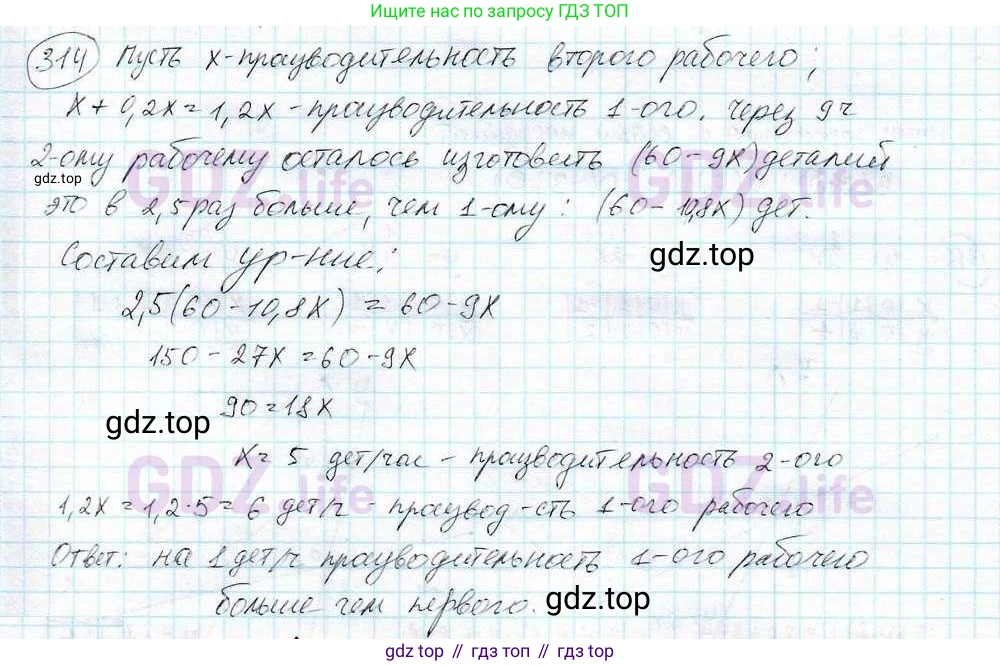 Ищите нас по запросу ГДЗ ТОП
314 Пусть х-производительность второго рабочего;
х + 0,2х = 1,2х - производительность 1-ого. Через 9 ч
2-ому рабочему осталось изготовить (60 - 9х) деталий
gdz.top
GDZ.life GDZ.life
это в 2,5 раз больше, чем 1-ому: (60 - 10,8х) дет.
Составим ур-ние:
gdz.top
2,5(60 - 10,8х) = 60 - 9х
150 - 27х = 60 - 9х
90 = 18х
gdz.top
х = 5 дет/час - производительность 2-ого
GDZ.life GDZ.life
1,2х = 1,2·5 = 6 дет/ч - производ-сть 1-ого рабочего
Ответ: на 1 дет/ч производительность 1-ого рабочего
больше чем первого.
gdz.top
gdz.top // гдз топ // gdz top